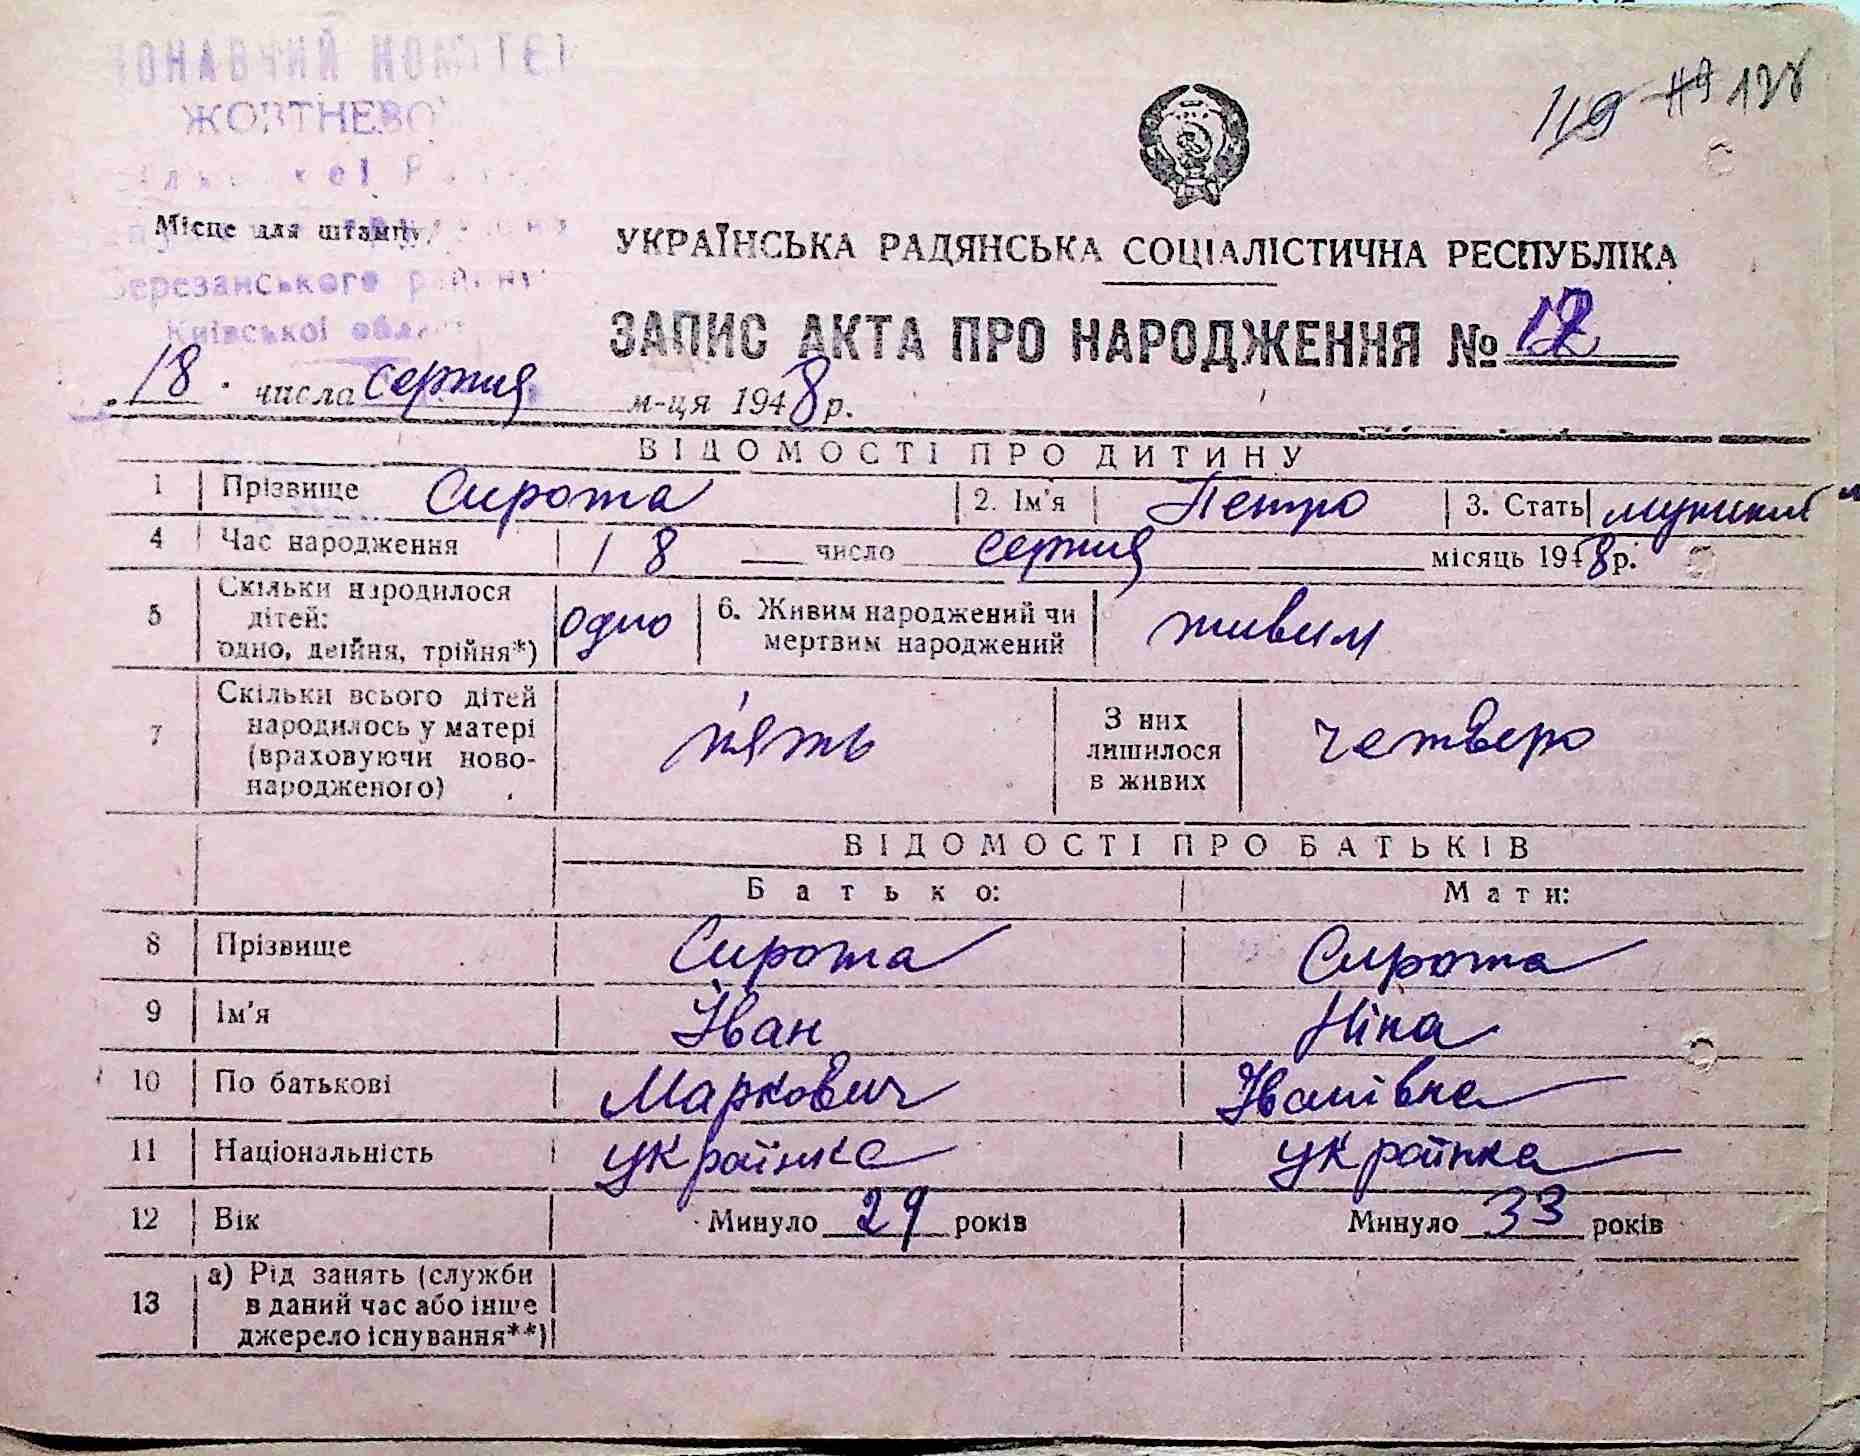 ЖОВТНЕВО
Місце для штампу
Березанського району
Київської обл
119 119 128
УКРАЇНСЬКА РАДЯНСЬКА СОЦІАЛІСТИЧНА РЕСПУБЛІКА
ЗАПИС АКТА ПРО НАРОДЖЕННЯ № 12
18 числа серпня м-ця 1948 р.
ВІДОМОСТІ ПРО ДИТИНУ
1 Прізвище Сирота 2. Ім'я Петро 3. Стать
4 Час народження 18 число серпня місяць 1948 р.
5 Скільки народилося
дітей:
одно, двійня, трійня*) одно 6. Живим народжений чи
мертвим народжений живим
7 Скільки всього дітей
народилось у матері
(враховуючи ново-
народженого) п'ять З них
лишилося
в живих четверо
ВІДОМОСТІ ПРО БАТЬКІВ
Батько: Мати:
8 Прізвище Сирота Сирота
9 Ім'я Іван Ніна
10 По батькові Маркович Іванівна
11 Національність українка українка
12 Вік Минуло 29 років Минуло 33 років
13 а) Рід занять (служби
в даний час або інше
джерело існування**)